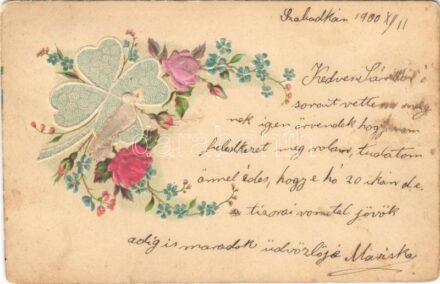 Szabadkán 1900 XI/11
Kedves
soraít vettem
nek igen örvendek hogy nem
feledkezet meg rolam, tudatom
önnel édes, hogy e hó 20 ikan d.e.
a tizorai vonatal jövök
adig is maradok üdvözlője Mariska